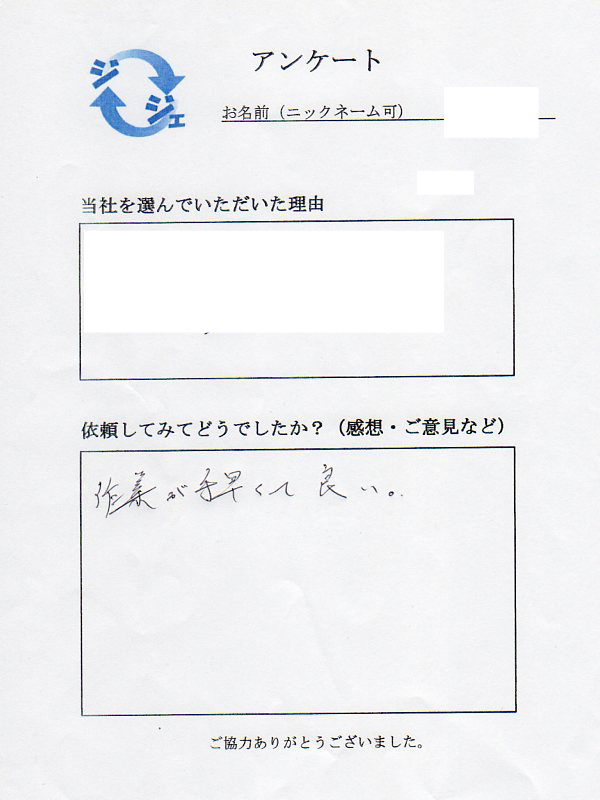 ジジェ
アンケート
お名前（ニックネーム可）
当社を選んでいただいた理由
依頼してみてどうでしたか？（感想・ご意見など）
作業が手早くて良い。
ご協力ありがとうございました。